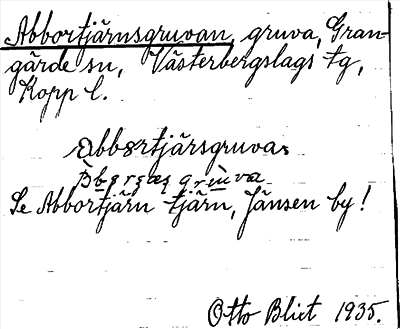 Abbortjärnsgruvan, gruva, Gran-
gärde sn, Västerbergslags tg,
Kopp. l.
Abbortjärsgruvas
gruva
Se Abbortjärn tjärn, Jänsen by!
Otto Blixt 1935.